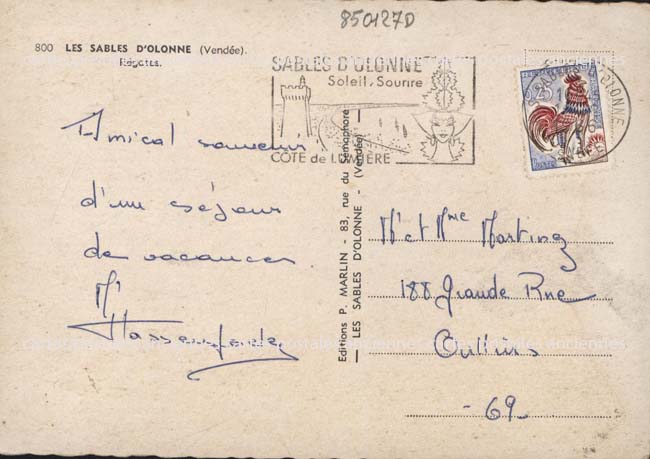 850127D
800 LES SABLES D'OLONNE (Vendée).
Régates.
SABLES D'OLONNE
Soleil. Sourire
CÔTE de LUMIÈRE
Amical souvenir
d'un séjour
de vacances
Mr
Editions P. MARLIN - 83, rue du Sémaphore
— LES SABLES D'OLONNE - (Vendée) —
Mr et Mme Martinez
188 Grande Rue
Oullins
- 69 -